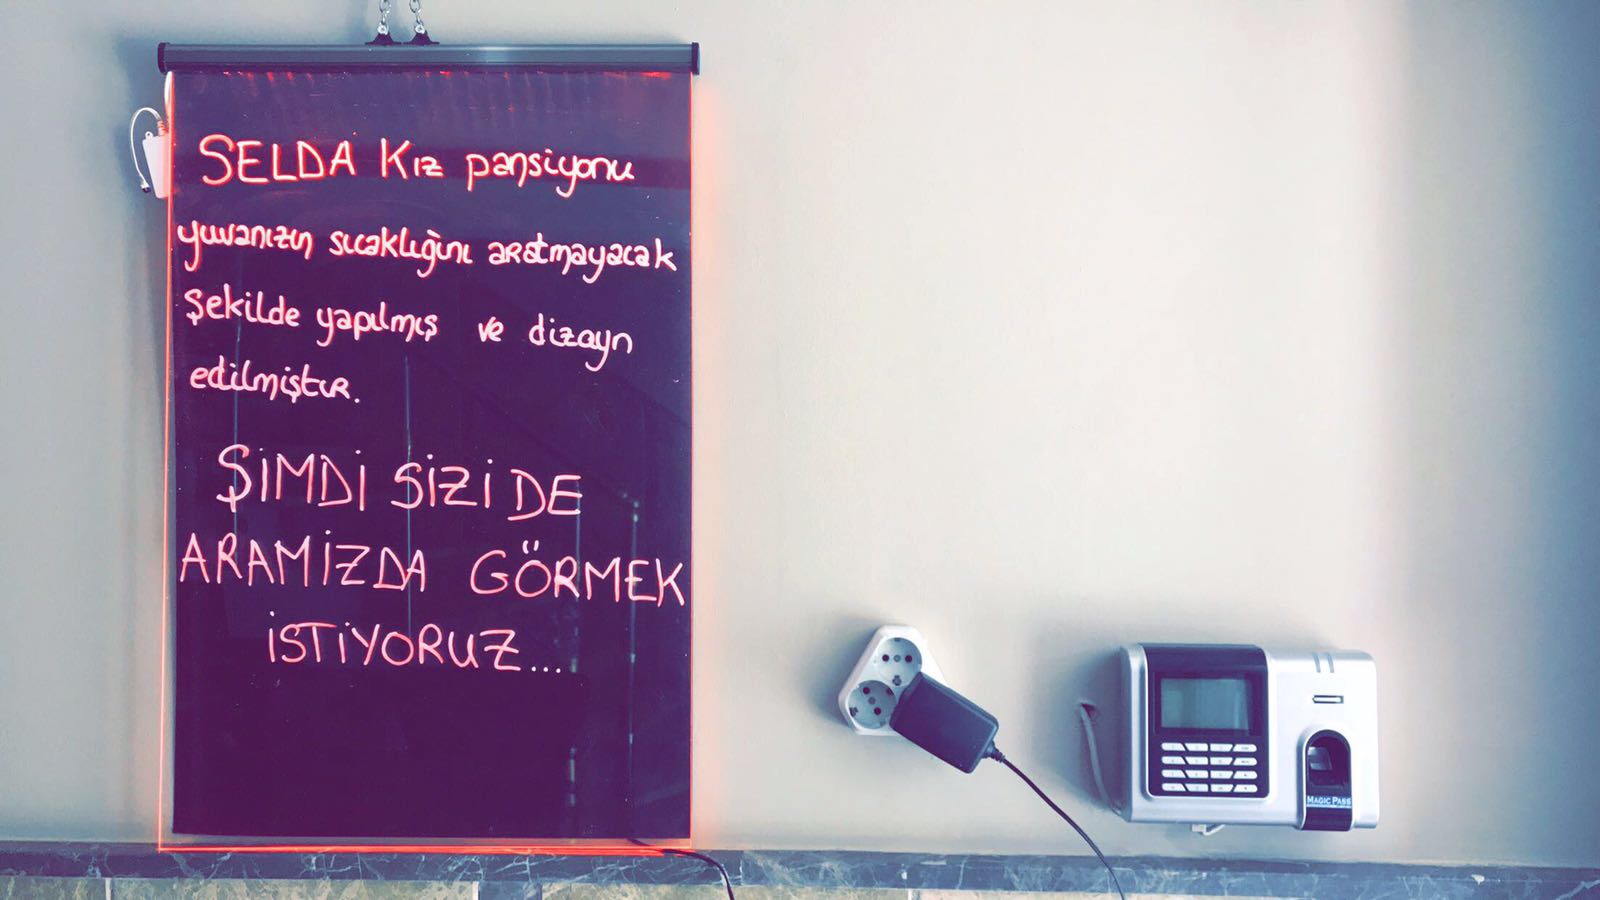 SELDA Kız pansiyonu
yuvanızın sıcaklığını aratmayacak
şekilde yapılmış ve dizayn
edilmiştir.
ŞİMDİ SİZİ DE
ARAMİZDA GÖRMEK
İSTİYORUZ...
MAGIC PASS